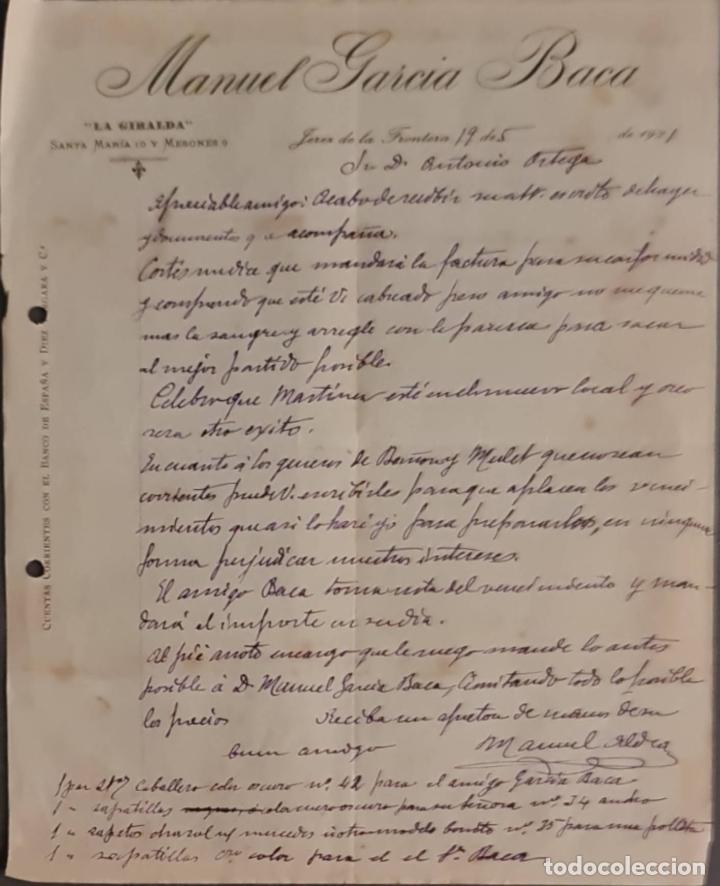 Manuel Garcia Baca
"LA GIRALDA"
SANTA MARÍA 10 Y MESONES 9
Jerez de la Frontera 19 de 5 de 1921
Sr. Dn. Antonio Ortega
Apreciable amigo: Acabo de recibir su att. escrito de hayer
y documentos q. e acompaña.
Cortés me dice que mandará la factura para su conformidad
y comprendo que esté V. cabreado pero amigo no se queme
mas la sangre y arregle con le parezca para sacar
el mejor partido posible.
Celebro que Martinez esté en el nuevo local y creo
sera otro exito.
En cuanto á los generos de y Mulet que no sean
corrientes puede V. escribirles para que aplacen los venci-
mientos que asi lo haré yo para prepararlos, en ninguna
forma perjudicar nuestros intereses.
El amigo Baca toma nota del vencimiento y man-
dará el importe en su dia.
Al pié anoto encargo que le ruego mande lo antes
posible á D. Manuel García Baca, limitando todo lo posible
los precios Reciba un apreton de manos de su
buen amigo Manuel Aldea
1 par caballero color oscuro nº. 42 para el amigo García Baca
1 " zapatillas cuero oscuro para su señora nº. 34 ancho
1 " zapatos mercedes otro modelo bonito nº. 35 para una pollita
1 " zapatillas color para el Sr. Baca
CUENTAS CORRIENTES CON EL BANCO DE ESPAÑA Y DIEZ VERGARA Y Cª
todocoleccion